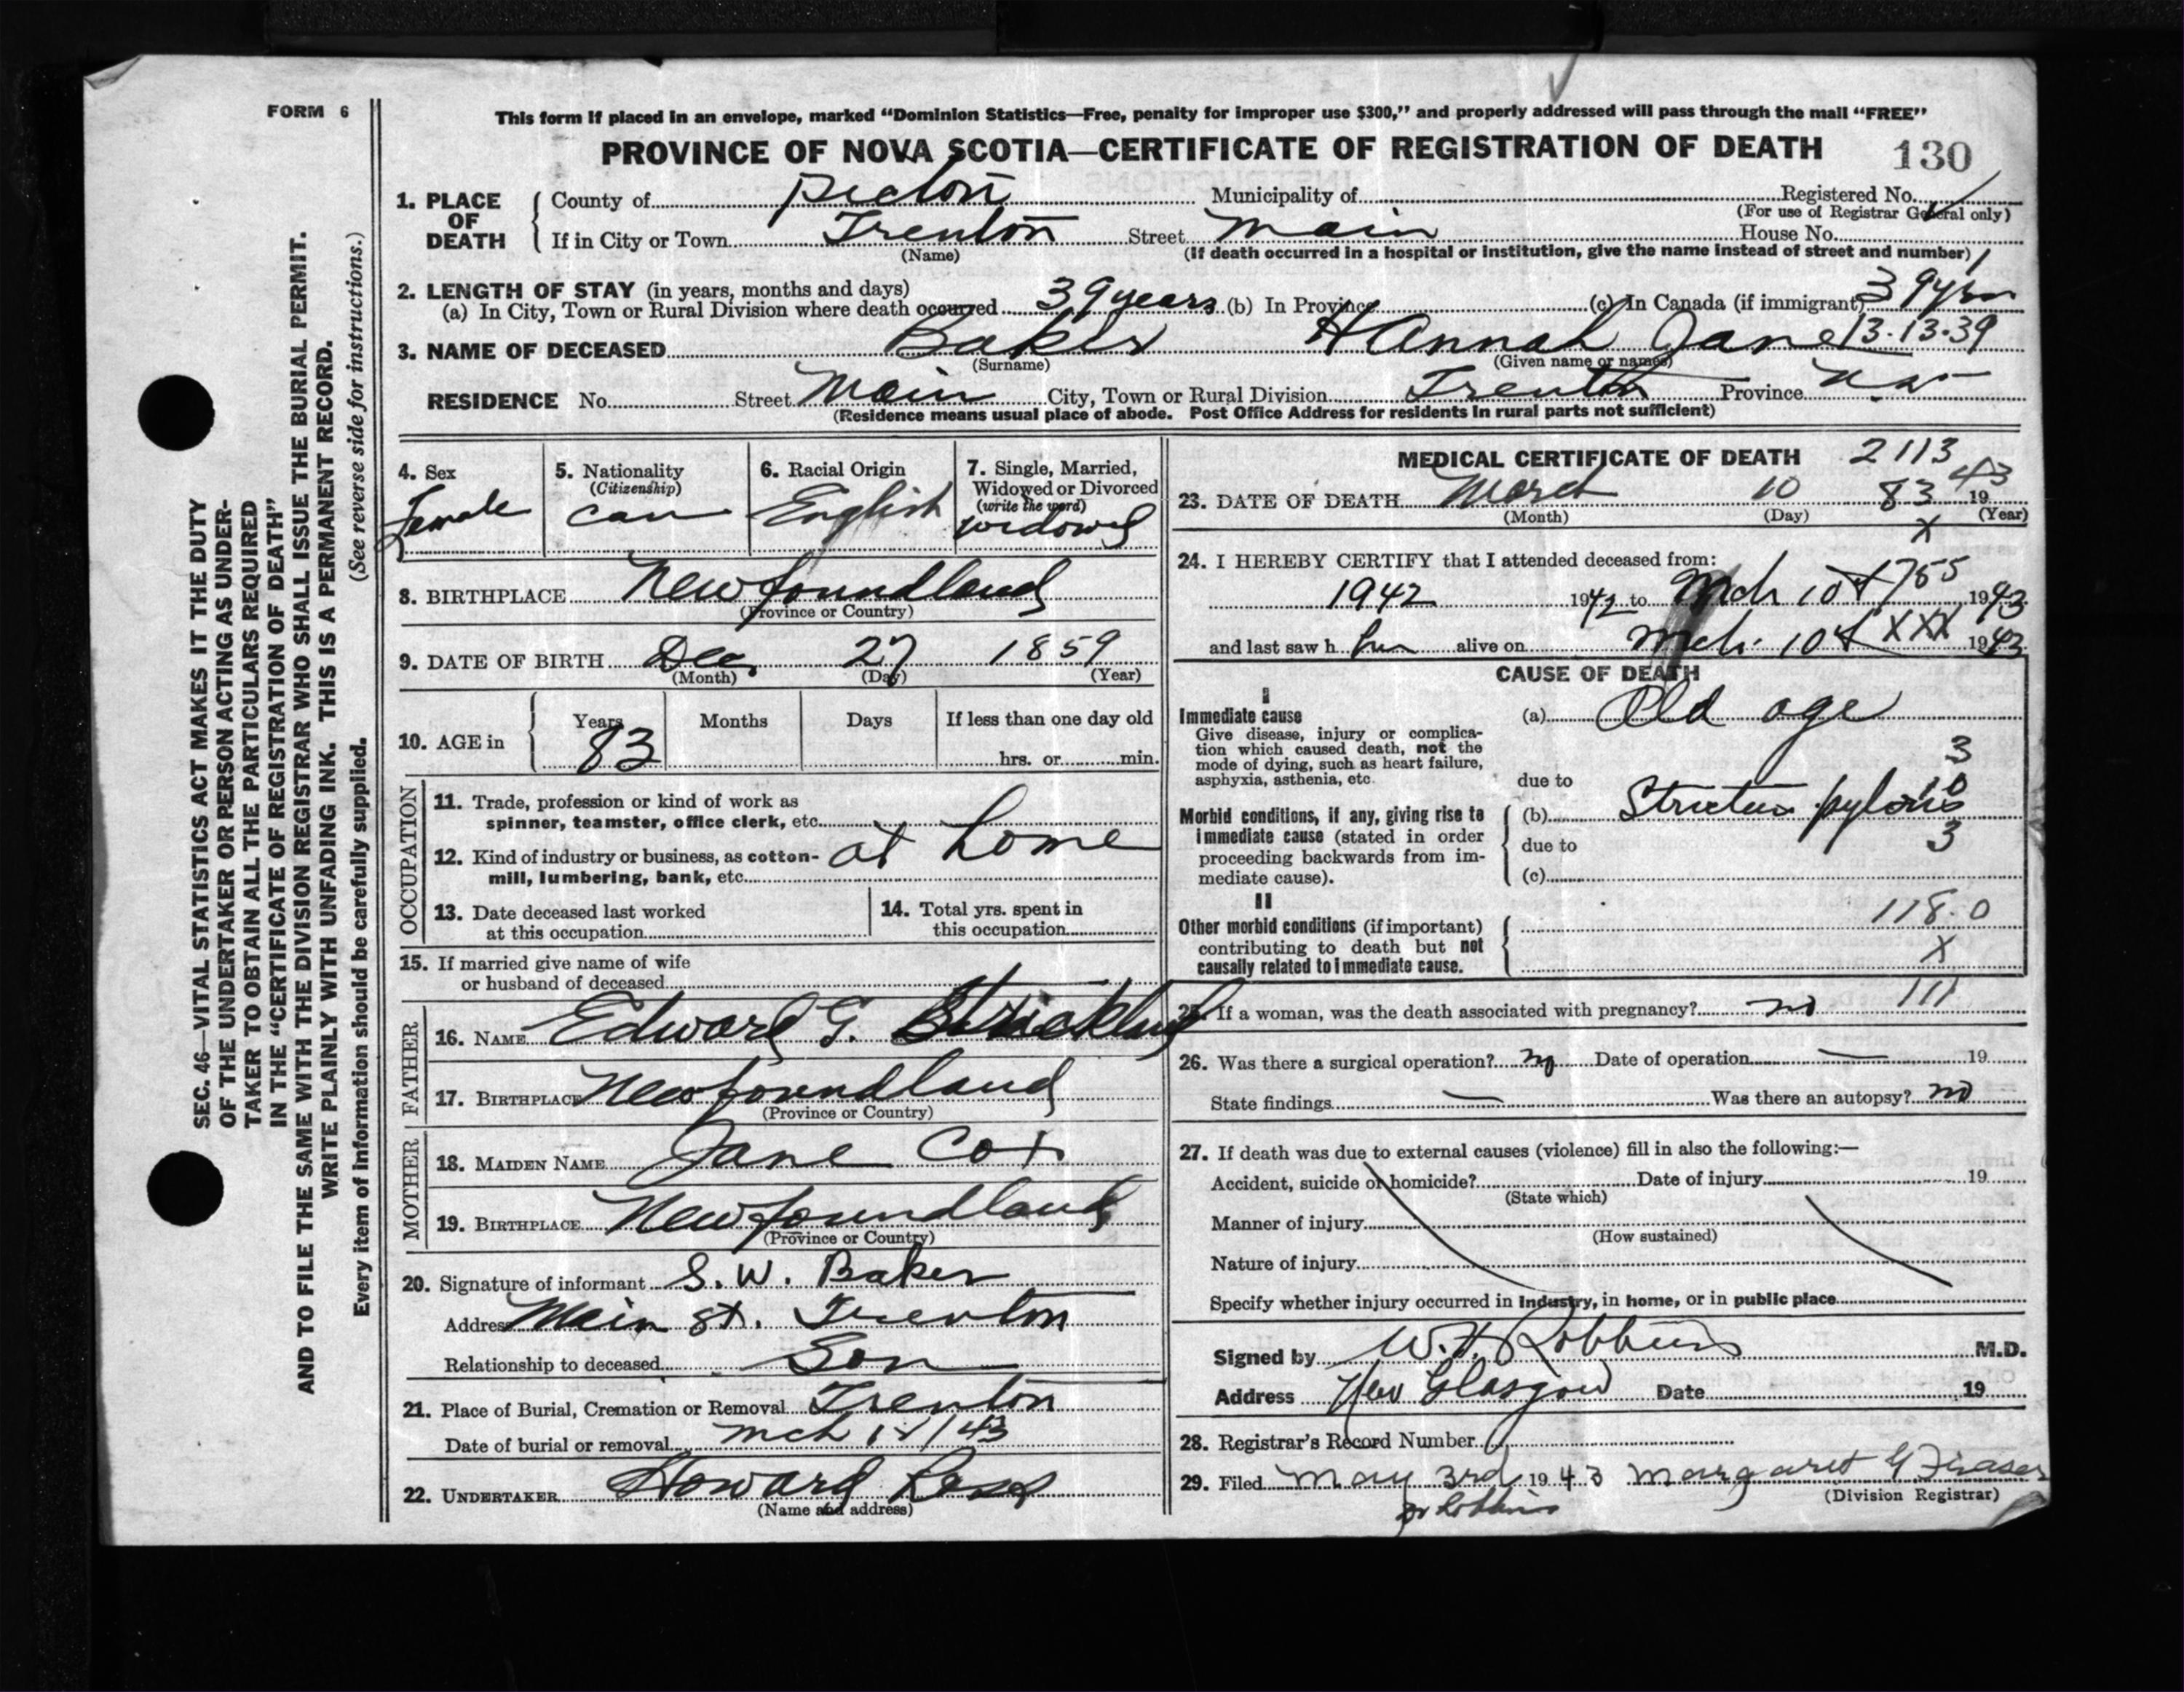 FORM 6
This form if placed in an envelope, marked “Dominion Statistics—Free, penalty for improper use $300,” and properly addressed will pass through the mail “FREE”
PROVINCE OF NOVA SCOTIA—CERTIFICATE OF REGISTRATION OF DEATH 130
1. PLACE OF DEATH
County of Pictou Municipality of Registered No.
(For use of Registrar General only)
If in City or Town Trenton Street Main House No.
(Name) (If death occurred in a hospital or institution, give the name instead of street and number)
2. LENGTH OF STAY (in years, months and days)
(a) In City, Town or Rural Division where death occurred 39 years (b) In Province (c) In Canada (if immigrant) 39 yrs
3. NAME OF DECEASED Baker Hannah Jane 13-13-39
(Surname) (Given name or names)
RESIDENCE No. Street Main City, Town or Rural Division Trenton Province N.S.
(Residence means usual place of abode. Post Office Address for residents in rural parts not sufficient)
4. Sex
Female
5. Nationality
(Citizenship)
Can
6. Racial Origin
English
7. Single, Married, Widowed or Divorced
(write the word)
widowed
8. BIRTHPLACE Newfoundland
(Province or Country)
9. DATE OF BIRTH Dec 27 1859
(Month) (Day) (Year)
10. AGE in Years Months Days If less than one day old
83 hrs. or min.
OCCUPATION
11. Trade, profession or kind of work as
spinner, teamster, office clerk, etc.
12. Kind of industry or business, as cotton- at home
mill, lumbering, bank, etc.
13. Date deceased last worked
at this occupation
14. Total yrs. spent in
this occupation
15. If married give name of wife
or husband of deceased
FATHER
16. NAME Edward G. Strickland
17. BIRTHPLACE Newfoundland
(Province or Country)
MOTHER
18. MAIDEN NAME Jane Cox
19. BIRTHPLACE Newfoundland
(Province or Country)
20. Signature of informant S. W. Baker
Address Main St. Trenton
Relationship to deceased Son
21. Place of Burial, Cremation or Removal Trenton
Date of burial or removal Mch /43
22. UNDERTAKER Howard
(Name and address)
MEDICAL CERTIFICATE OF DEATH 2113
23. DATE OF DEATH March 10 83 1943
(Month) (Day) (Year)
X
24. I HEREBY CERTIFY that I attended deceased from:
1942 1942 to Mch 10th 755 1943
and last saw her alive on Mch. 10th XXX 1943
CAUSE OF DEATH
I
Immediate cause (a) Old age
Give disease, injury or complica-
tion which caused death, not the
mode of dying, such as heart failure,
asphyxia, asthenia, etc. due to
3
10
Morbid conditions, if any, giving rise to (b) Stricture pylorus
immediate cause (stated in order due to 3
proceeding backwards from im-
mediate cause). (c)
II
Other morbid conditions (if important) 118.0
contributing to death but not
causally related to immediate cause. X
25. If a woman, was the death associated with pregnancy? no 111
26. Was there a surgical operation? no Date of operation — 19
State findings — Was there an autopsy? no
27. If death was due to external causes (violence) fill in also the following:—
Accident, suicide or homicide? Date of injury 19
(State which)
Manner of injury
(How sustained)
Nature of injury
Specify whether injury occurred in industry, in home, or in public place
Signed by W. H. Robbins M.D.
Address New Glasgow Date 19
28. Registrar's Record Number
29. Filed May 3rd 1943 Margaret G Fraser
(Division Registrar)
Dr Robbins
SEC. 46—VITAL STATISTICS ACT MAKES IT THE DUTY
OF THE UNDERTAKER OR PERSON ACTING AS UNDER-
TAKER TO OBTAIN ALL THE PARTICULARS REQUIRED
IN THE “CERTIFICATE OF REGISTRATION OF DEATH”
AND TO FILE THE SAME WITH THE DIVISION REGISTRAR WHO SHALL ISSUE THE BURIAL PERMIT.
WRITE PLAINLY WITH UNFADING INK. THIS IS A PERMANENT RECORD.
Every item of information should be carefully supplied. (See reverse side for instructions.)